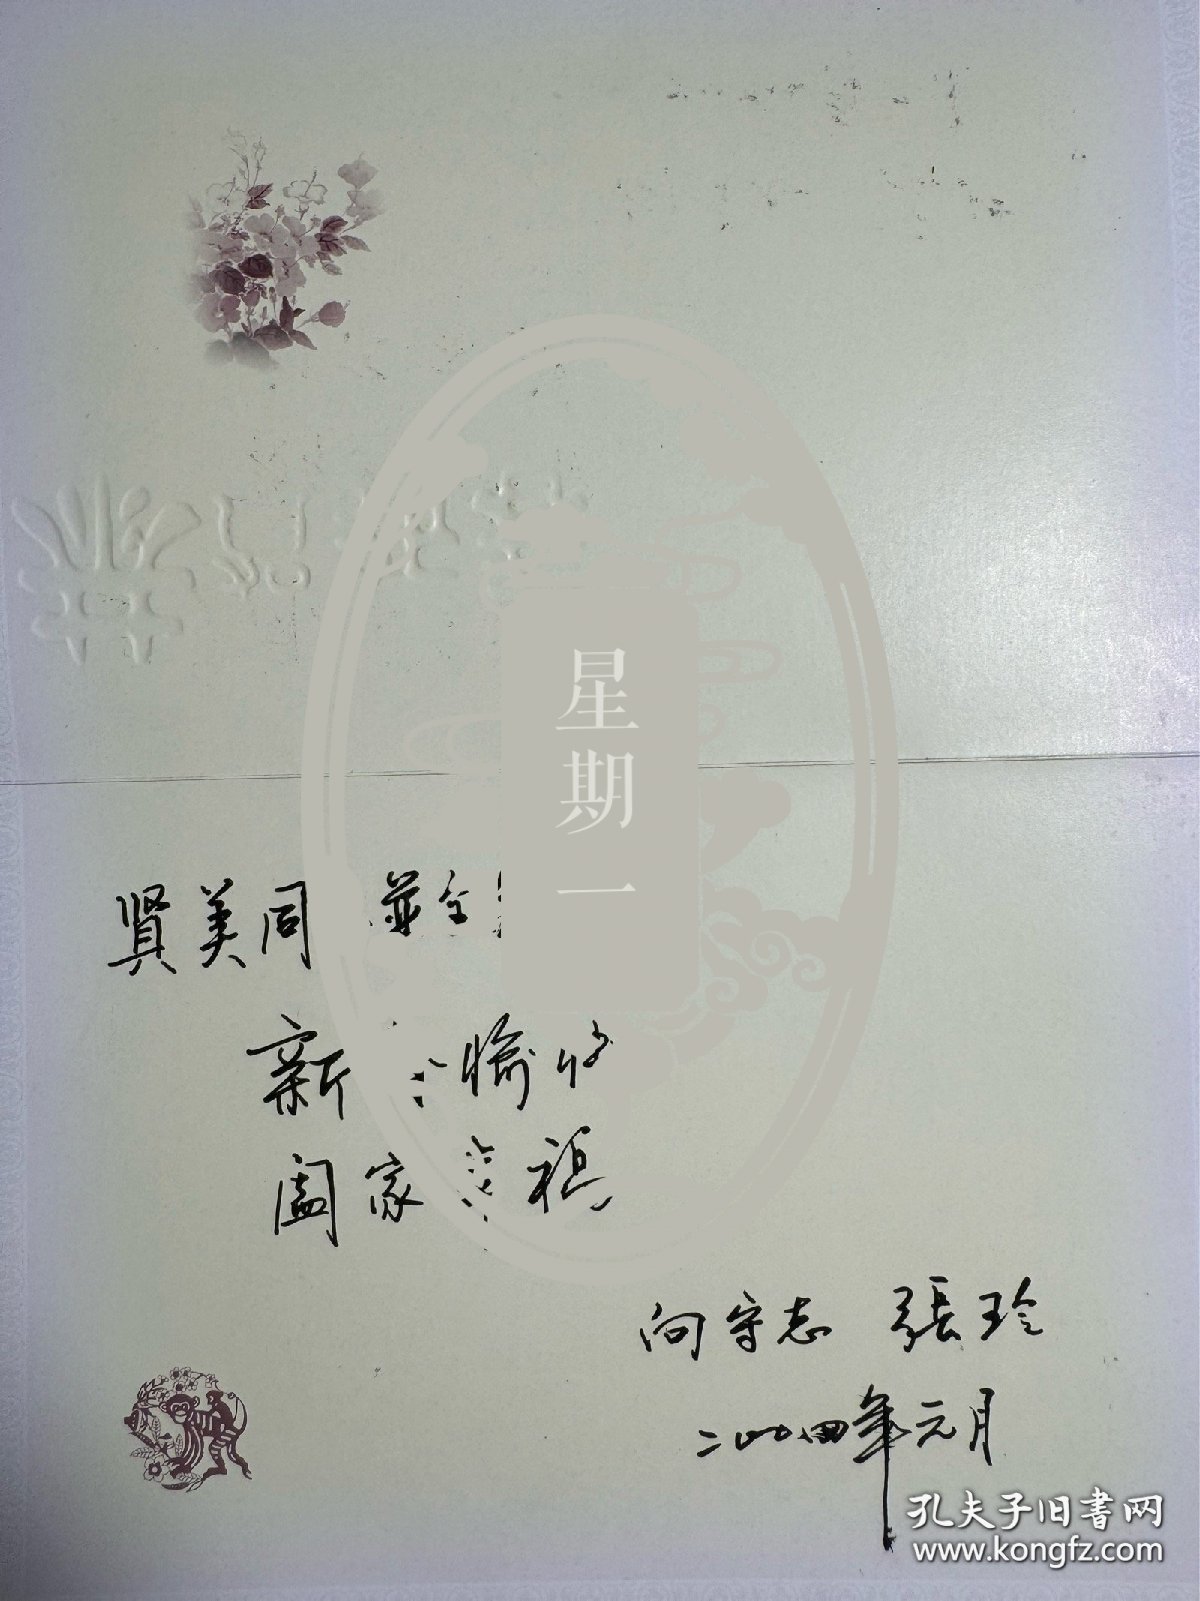 星期一
贤美同 並全
新 愉
阖家 福
向守志 張玲
二〇〇四年元月
孔夫子旧书网
www.kongfz.com